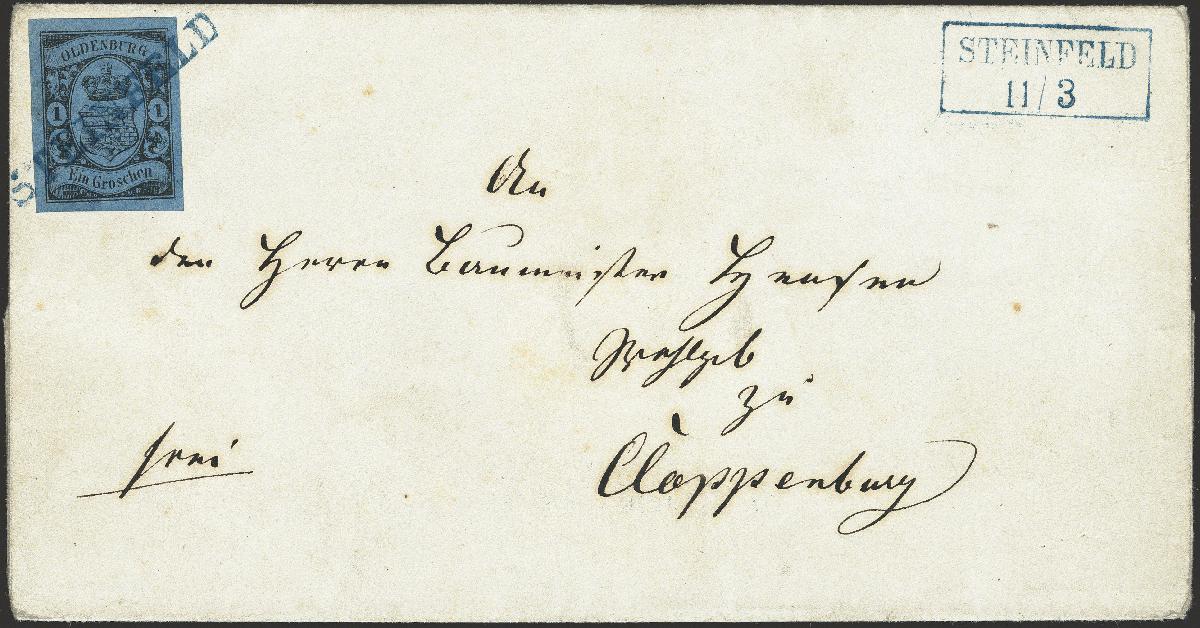 OLDENBURG
1 1
Ein Groschen
STEINFELD
STEINFELD
11/3
An
den Herrn Baumeister
Wohlgeb
zu
Cloppenburg
frei